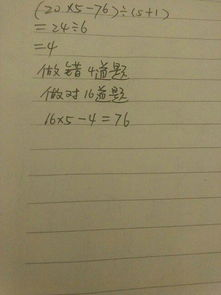 (20×5-76)÷(5+1)
=24÷6
=4
做错4道题
做对16道题
16×5-4=76